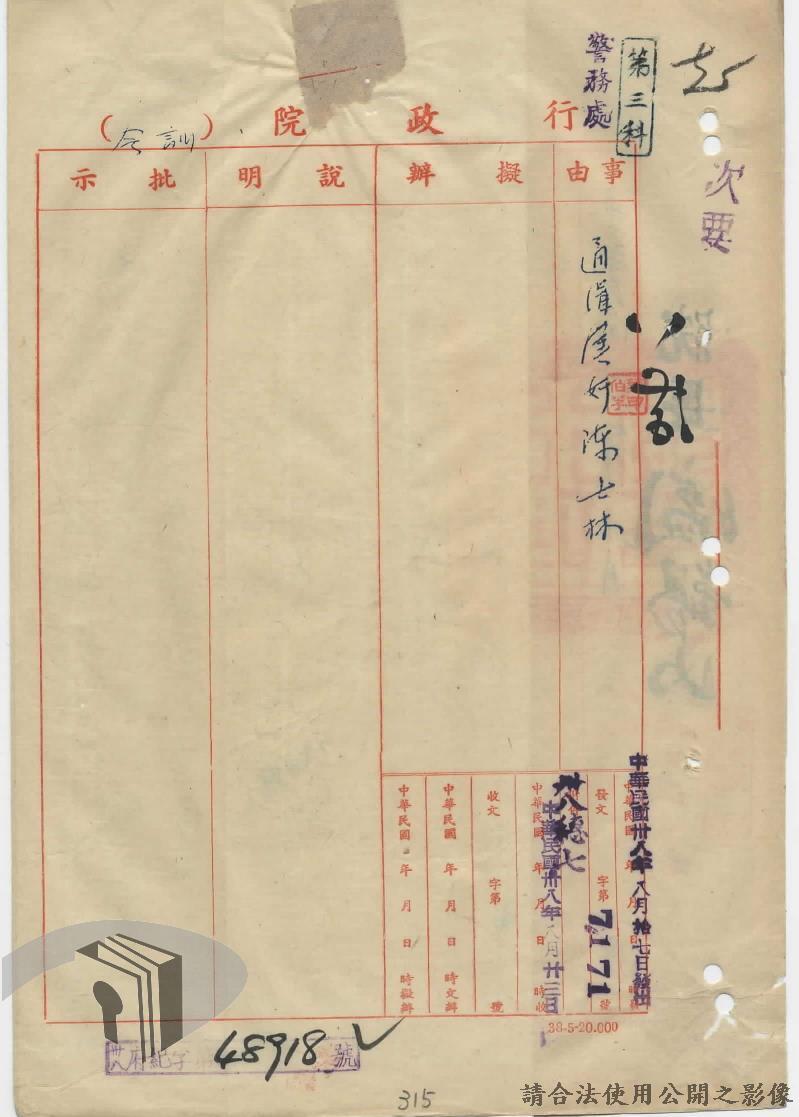 次要
警務處
第三科
行政院(訓令)
事由
擬辦
說明
批示
通緝漢奸陳士林
中華民國卅八年八月拾七日發出
發文 字第 號
7171
卅八穗七
中華民國卅八年八月廿二日
中華民國 年 月 日 時收
收文 字第 號
中華民國 年 月 日 時文辦
中華民國 年 月 日 時擬辦
38-5-20.000
府紀字 48918 號
315
請合法使用公開之影像